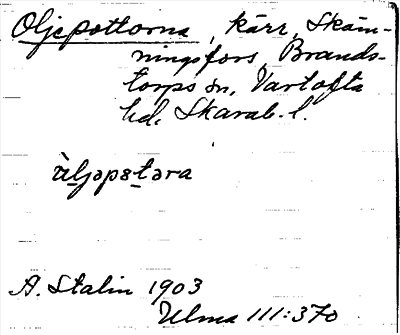 Oljepottorna, kärr, Skäm-
ningsfors, Brands-
torps sn, Vartofta
hd, Skarab. l.
àljəpɛtəra
A. Stalin 1903
Ulma 111:370